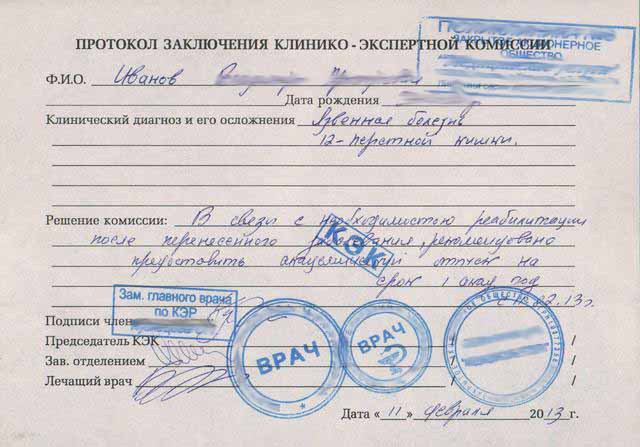 ЗАКРЫТОЕ АКЦИОНЕРНОЕ
ОБЩЕСТВО
ПРОТОКОЛ ЗАКЛЮЧЕНИЯ КЛИНИКО - ЭКСПЕРТНОЙ КОМИССИИ
Ф.И.О. Иванов
Дата рождения
Клинический диагноз и его осложнения Язвенная болезнь
12-перстной кишки.
Решение комиссии: В связи с необходимостью реабилитации
после перенесенного заболевания, рекомендовано
предоставить академический отпуск на
срок 1 акад год
02.13г.
КЭК
Зам. главного врача
по КЭР
Подписи член
Председатель КЭК /
Зав. отделением / /
Лечащий врач / /
ВРАЧ
ВРАЧ
Дата « 11 » февраля 2013 г.